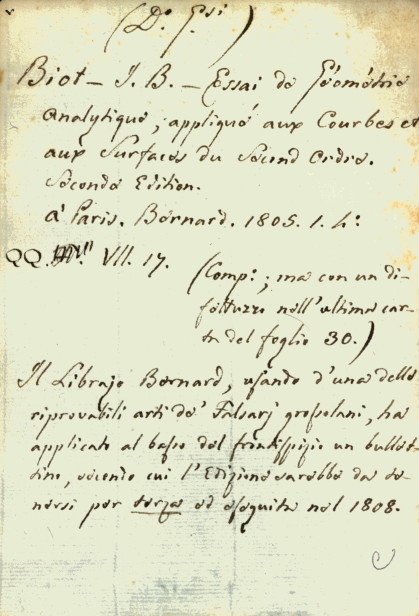 (D.º G.si)
Biot – J. B. – Essai de Géométrie
Analytique, appliqué aux Courbes et
aux Surfaces du Second Ordre.
Seconde Edition.
à Paris. Bernard. 1805. 1. 4:
QQ. VII. 17.
(Comp:; ma con un di-
fettuzzo nell'ultima car-
ta del foglio 30.)
Il Librajo Bernard, usando d'una delle
riprovabili arti de' Falsarj grossolani, ha
applicato al basso del frontispizio un bullet-
tino, secondo cui l'Edizione sarebbe da te-
nersi per terza ed eseguita nel 1808.